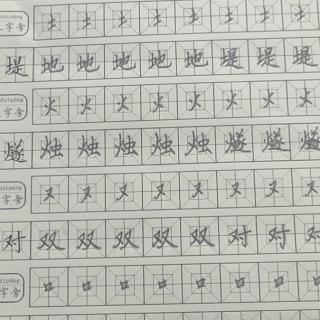 字旁 土 土 土 土 土 土 土 土
堤 地 地 地 地 地 堤 堤 堤
字旁 火 火 火 火 火 火 火 火
燧 烛 烛 烛 烛 烛 燧 燧 燧
字旁 又 又 又 又 又 又 又 又
对 双 双 双 双 双 对 对 对
字旁 口 口 口 口 口 口 口 口